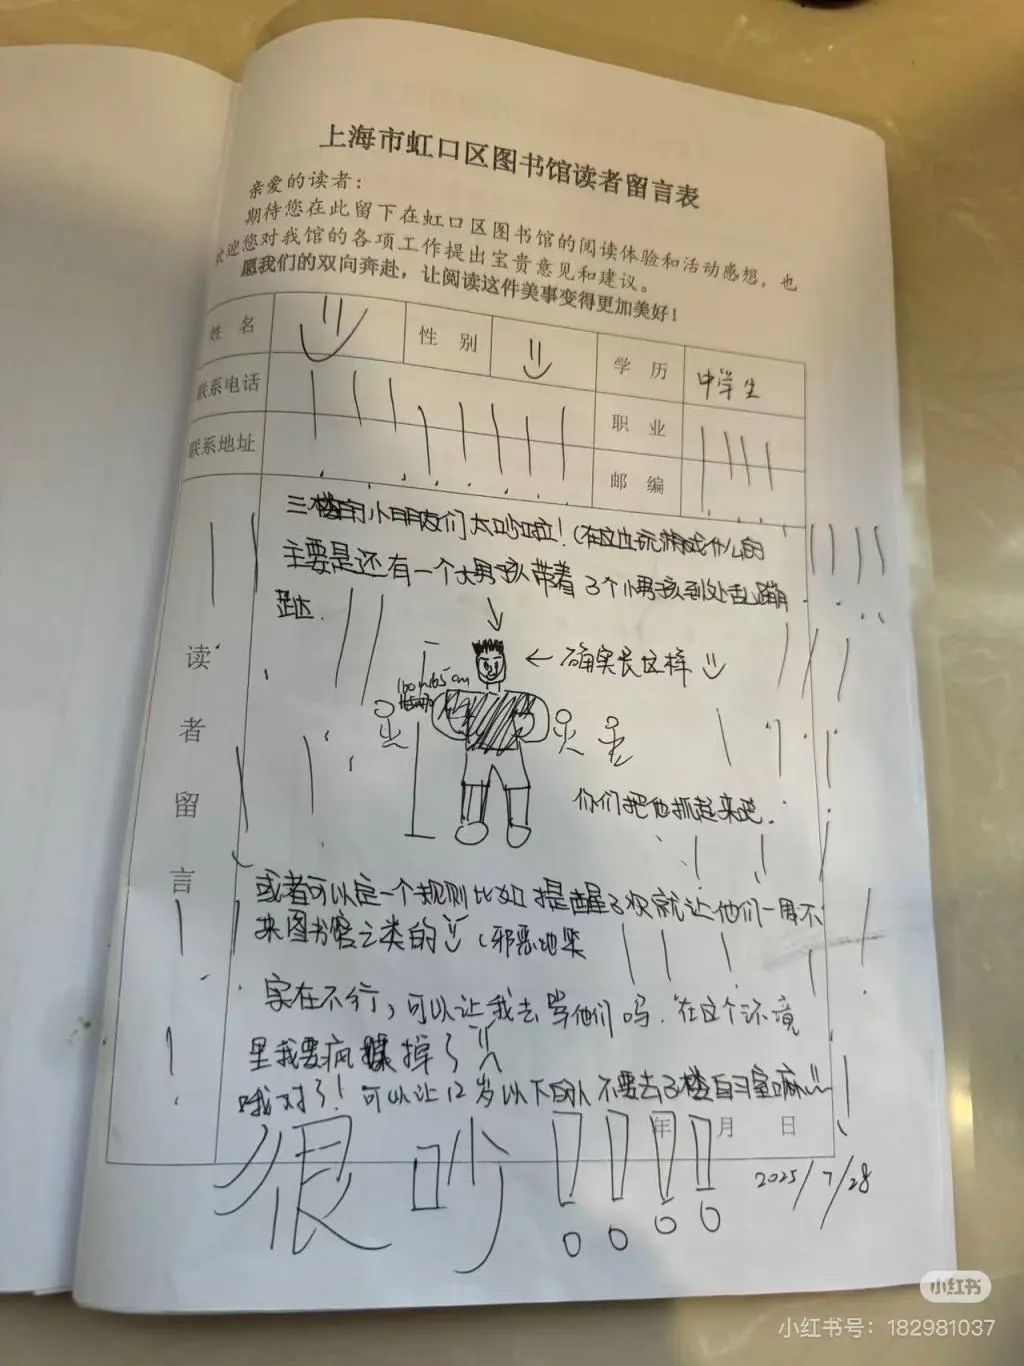 上海市虹口区图书馆读者留言表
亲爱的读者：
期待您在此留下在虹口区图书馆的阅读体验和活动感想，也
欢迎您对我馆的各项工作提出宝贵意见和建议。
愿我们的双向奔赴，让阅读这件美事变得更加美好！
姓 名
性 别
学 历 中学生
联系电话
职 业
联系地址
邮 编
读者留言
三楼的小朋友们太吵啦！（在这边玩游戏什么的
主要是还有一个大男孩带着3个小男孩到处乱蹦
跶.
← 确实长这样
165cm
你们把他抓起来吧.
或者可以定一个规则比如提醒3次就让他们一周不
来图书馆之类的（邪恶地笑
实在不行，可以让我去管他们吗.在这个环境
里我要疯掉了
哦对了！可以让12岁以下的人不要去3楼自习室嘛
年 月 日
很吵！！！！
2025/7/28
小红书
小红书号：182981037